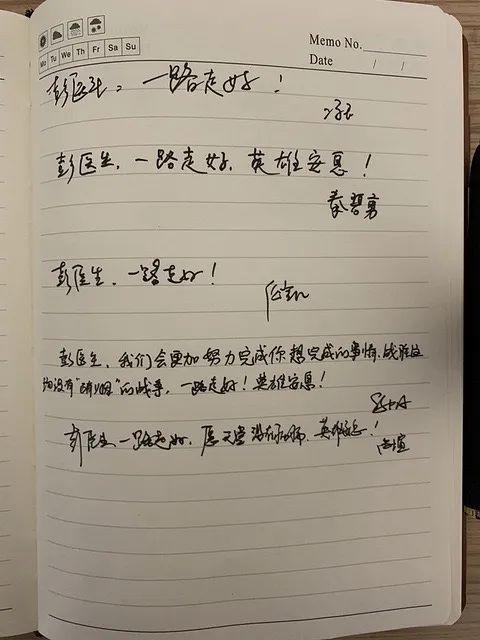 Memo No.
Mo Tu We Th Fr Sa Su
Date / /
彭医生，一路走好！
彭医生，一路走好，英雄安息！
秦碧勇
彭医生，一路走好！
彭医生，我们会更加努力完成你想完成的事情，战胜这
场没有“硝烟”的战争，一路走好！英雄安息！
彭医生一路走好，愿天堂没有病痛，英雄安息！